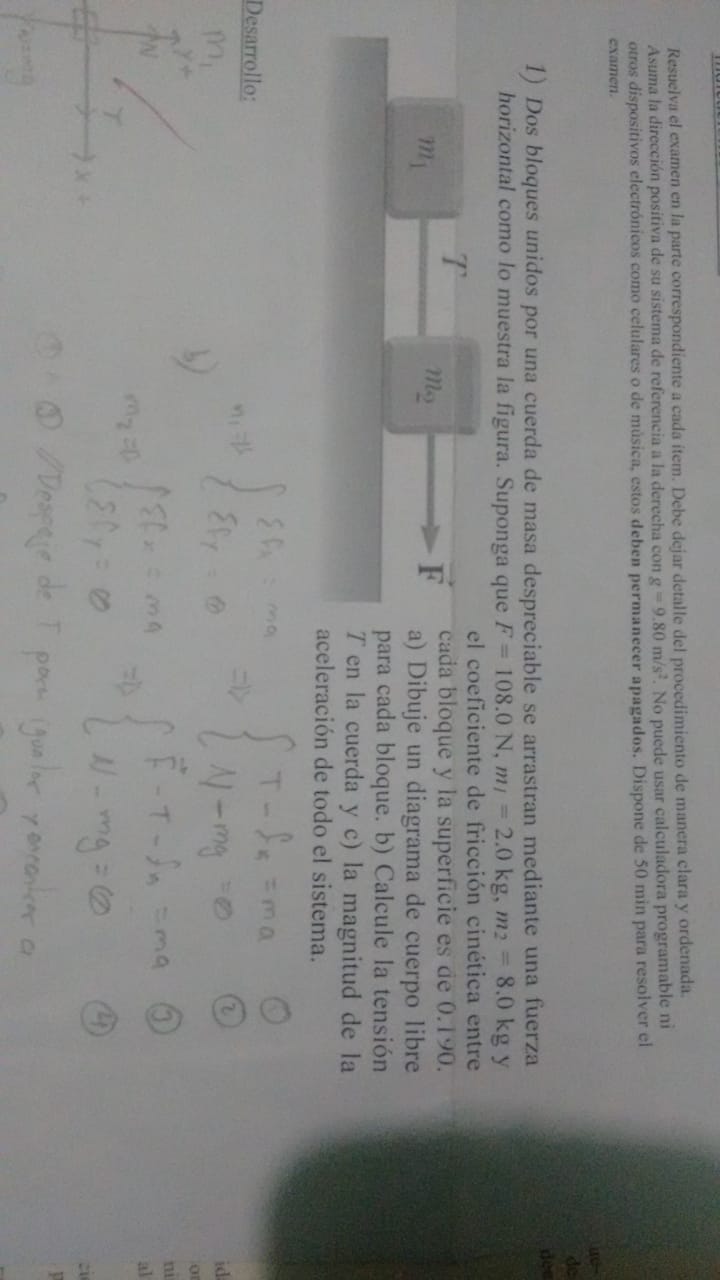 Resuelva el examen en la parte correspondiente a cada ítem. Debe dejar detalle del procedimiento de manera clara y ordenada.
Asuma la dirección positiva de su sistema de referencia a la derecha con g = 9.80 m/s². No puede usar calculadora programable ni
otros dispositivos electrónicos como celulares o de música, estos deben permanecer apagados. Dispone de 50 min para resolver el
examen.
1) Dos bloques unidos por una cuerda de masa despreciable se arrastran mediante una fuerza
horizontal como lo muestra la figura. Suponga que F = 108.0 N, m₁ = 2.0 kg, m₂ = 8.0 kg y
el coeficiente de fricción cinética entre
cada bloque y la superficie es de 0.190.
a) Dibuje un diagrama de cuerpo libre
para cada bloque. b) Calcule la tensión
T en la cuerda y c) la magnitud de la
aceleración de todo el sistema.
m₁ T m₂ F
Desarrollo:
m₁
y+
N
T
x+
b)
m₁ => { Σfx = ma => { T - fk = ma ①
Σfy = 0 N - mg = 0 ②
m₂ => { Σfx = ma => { F - T - fk = ma ③
Σfy = 0 N - mg = 0 ④
① ③ //Despeje de T para igualar y encontrar a